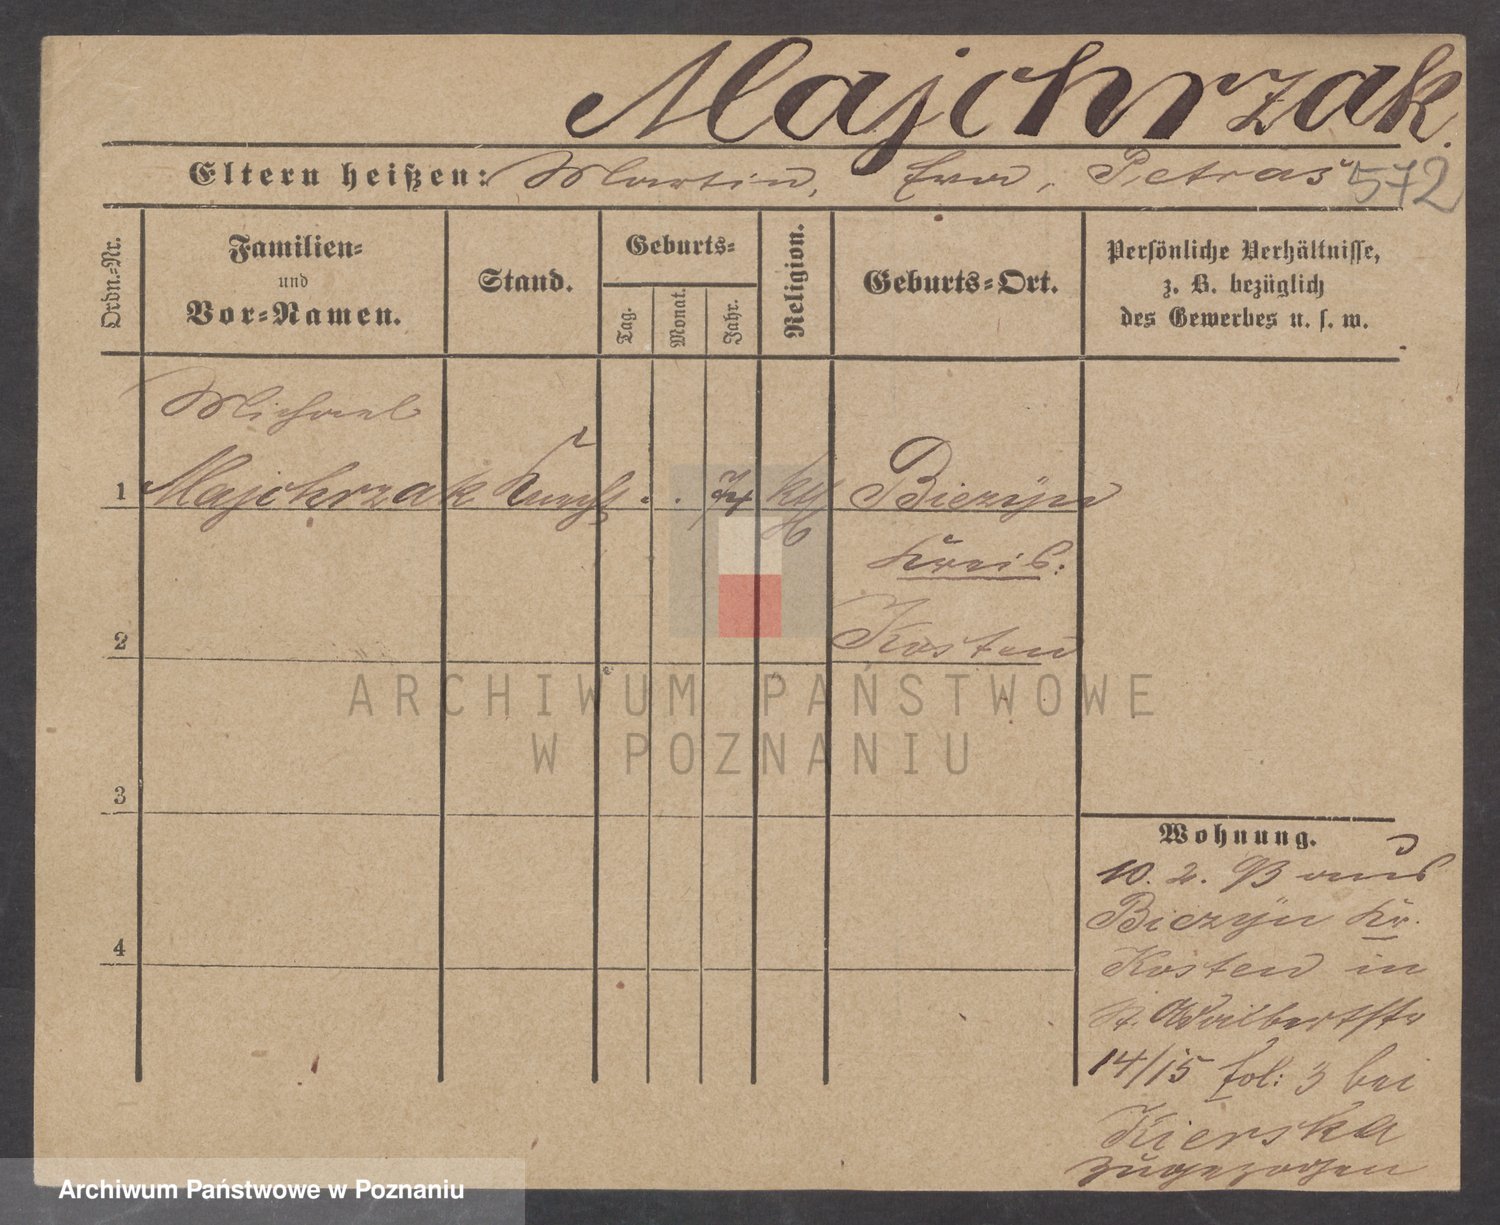 Majchrzak.
Eltern heißen: Martin, Eva, Petras
572
Ordn.-Nr.
Familien-
und
Vor-Namen.
Stand.
Geburts-
Tag.
Monat.
Jahr.
Religion.
Geburts-Ort.
Persönliche Verhältnisse,
z. B. bezüglich
des Gewerbes u. s. w.
Michael
1 Majchrzak Knecht . . 74 kth Bieczyn
Kreis:
Kosten
2
3
4
ARCHIWUM PAŃSTWOWE
W POZNANIU
Wohnung.
10. 2. 93 aus
Bieczyn Kr.
Kosten in
St. Adalbertstr
14/15 fol: 3 bei
Kierska
zugezogen
Archiwum Państwowe w Poznaniu